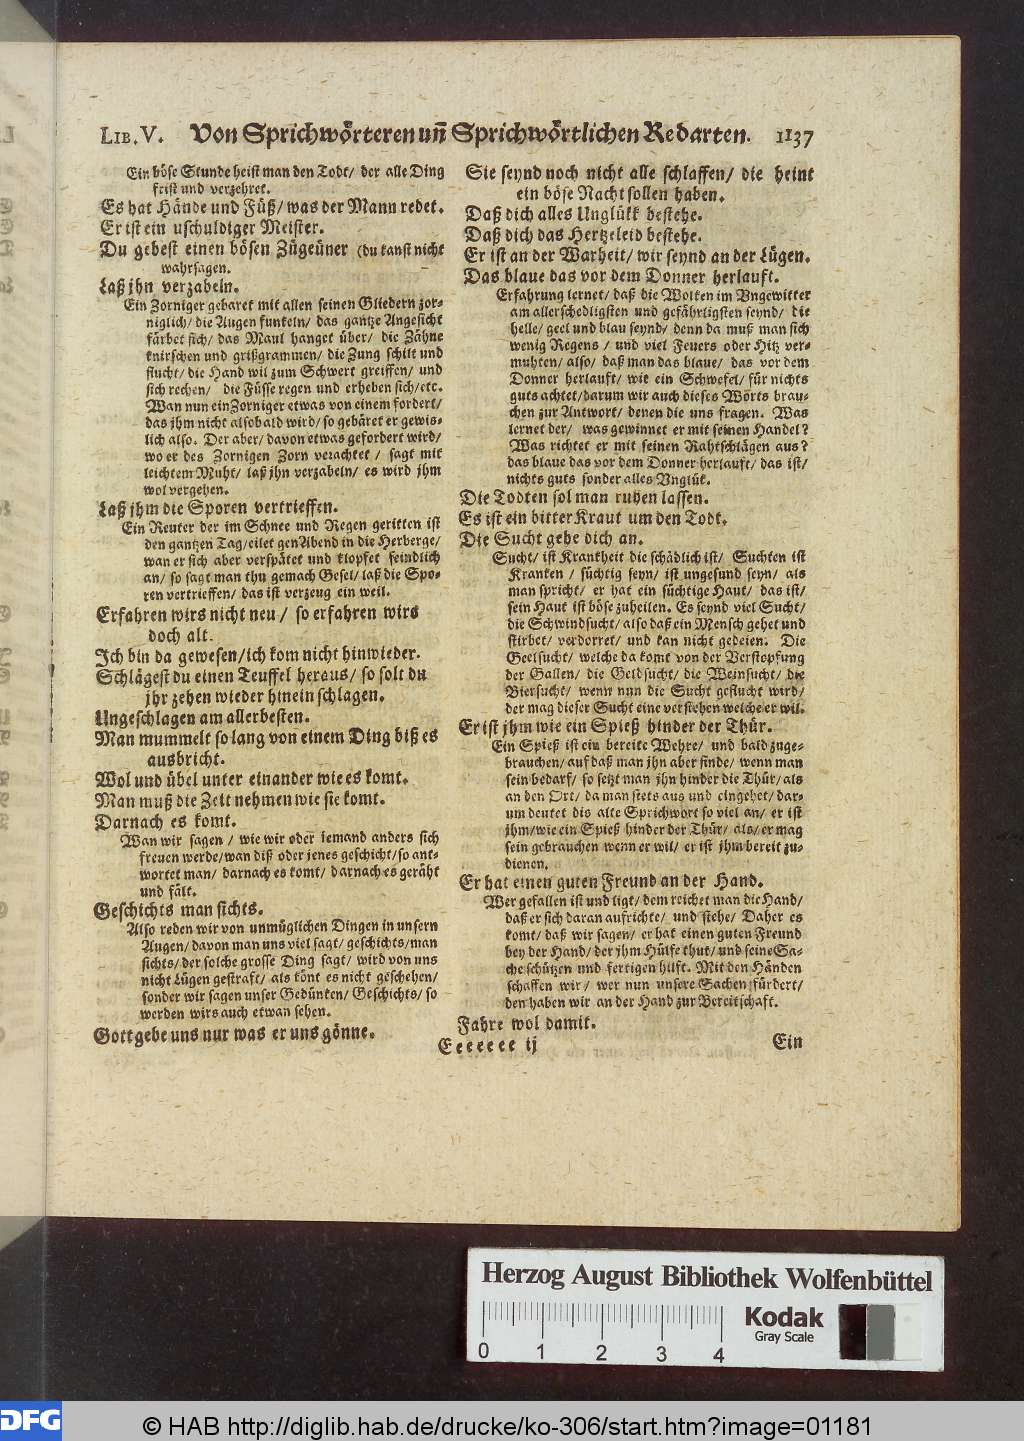 LIB. V. Von Sprichwörteren uñ Sprichwörtlichen Redarten. 1137
Ein böse Stunde heist man den Todt/ der alle Ding
frist und verzehret.
Es hat Hände und Füß/ was der Mann redet.
Er ist ein uschuldiger Meister.
Du gebest einen bösen Zügeüner (du kanst nicht
wahrsagen.
Laß jhn verzabeln.
Ein Zorniger gebaret mit allen seinen Gliedern zor-
niglich/ die Augen funkeln/ das gantze Angesicht
färbet sich/ das Maul hanget über/ die Zähne
knirschen und grißgrammen/ die Zung schilt und
flucht/ die Hand wil zum Schwert greiffen/ und
sich rechen/ die Füsse regen und erheben sich/etc.
Wan nun ein Zorniger etwas von einem fordert/
das jhm nicht alsobald wird/ so gebäret er gewis-
lich also. Der aber/ davon etwas gefordert wird/
wo er des Zornigen Zorn verachtet/ sagt mit
leichtem Muht/ laß jhn verzabeln/ es wird jhm
wol vergehen.
Laß jhm die Sporen vertrieffen.
Ein Reuter der im Schnee und Regen geritten ist
den gantzen Tag/ eilet gen Abend in die Herberge/
wan er sich aber verspätet und klopfet feindlich
an/ so sagt man thu gemach Gesel/ laß die Spo-
ren vertrieffen/ das ist verzeug ein weil.
Erfahren wirs nicht neu/ so erfahren wirs
doch alt.
Ich bin da gewesen/ich kom nicht hinwieder.
Schlägest du einen Teuffel heraus/ so solt du
jhr zehen wieder hinein schlagen.
Ungeschlagen am allerbesten.
Man mummelt so lang von einem Ding biß es
ausbricht.
Wol und übel unter einander wie es komt.
Man muß die Zeit nehmen wie sie komt.
Darnach es komt.
Wan wir sagen/ wie wir oder jemand anders sich
freuen werde/wan diß oder jenes geschicht/so ant-
wortet man/ darnach es komt/ darnach es geräht
und fält.
Geschichts man sichts.
Also reden wir von unmüglichen Dingen in unsern
Augen/ davon man uns viel sagt/ geschichts/man
sichts/ der solche grosse Ding sagt/ wird von uns
nicht Lügen gestraft/ als könt es nicht geschehen/
sonder wir sagen unser Gedünken/ Geschichts/ so
werden wirs auch etwan sehen.
Gott gebe uns nur was er uns gönne.
Sie seynd noch nicht alle schlaffen/ die heint
ein böse Nacht sollen haben.
Daß dich alles Unglükk bestehe.
Daß dich das Hertzeleid bestehe.
Er ist an der Warheit/ wir seynd an der Lügen.
Das blaue das vor dem Donner herlauft.
Erfahrung lernet/ daß die Wolken im Ungewitter
am allerschedligsten und gefährligsten seynd/ die
helle/ geel und blau seynd/ denn da muß man sich
wenig Regens/ und viel Feuers oder Hitz ver-
muhten/ also/ daß man das blaue/ das vor dem
Donner herlauft/ wie ein Schwefel/ für nichts
guts achtet/darum wir auch dieses Worts brau-
chen zur Antwort/ denen die uns fragen. Was
lernet der/ was gewinnet er mit seinen Handel?
Was richtet er mit seinen Rahtschlägen aus?
das blaue das vor dem Donner herlauft/ das ist/
nichts guts sonder alles Unglük.
Die Todten sol man ruhen lassen.
Es ist ein bitter Kraut um den Todt.
Die Sucht gehe dich an.
Sucht/ ist Krankheit die schädlich ist/ Suchten ist
Kranken/ süchtig seyn/ ist ungesund seyn/ als
man spricht/ er hat ein süchtige Haut/ das ist/
sein Haut ist böse zuheilen. Es seynd viel Sucht/
die Schwindsucht/ also daß ein Mensch gehet und
stirbet/ verdorret/ und kan nicht gedeien. Die
Geelsucht/ welche da komt von der Verstopfung
der Gallen/ die Geldsucht/ die Weinsucht/ die
Biersucht/ wenn nun die Sucht geflucht wird/
der mag dieser Sucht eine verstehen welche er wil.
Er ist jhm wie ein Spieß hinder der Thür.
Ein Spieß ist ein bereite Wehre/ und bald zuge-
brauchen/ auf daß man jhn aber finde/ wenn man
sein bedarf/ so setzt man jhn hinder die Thür/ als
an den Ort/ da man stets aus und eingehet/ dar-
um deutet dis alte Sprichwort so viel an/ er ist
jhm/wie ein Spieß hinder der Thür/ als/ er mag
sein gebrauchen wenn er wil/ er ist jhm bereit zu-
dienen.
Er hat einen guten Freund an der Hand.
Wer gefallen ist und ligt/ dem reichet man die Hand/
daß er sich daran aufrichte/ und stehe/ Daher es
komt/ daß wir sagen/ er hat einen guten Freund
bey der Hand/ der jhm Hülfe thut/ und seine Sa-
che schützen und fertigen hilft. Mit den Händen
schaffen wir/ wer nun unsere Sachen fürdert/
den haben wir an der Hand zur Bereitschaft.
Fahre wol damit.
Eeeeeee ij
Ein
Herzog August Bibliothek Wolfenbüttel
Kodak
Gray Scale
0 1 2 3 4
DFG
© HAB http://diglib.hab.de/drucke/ko-306/start.htm?image=01181